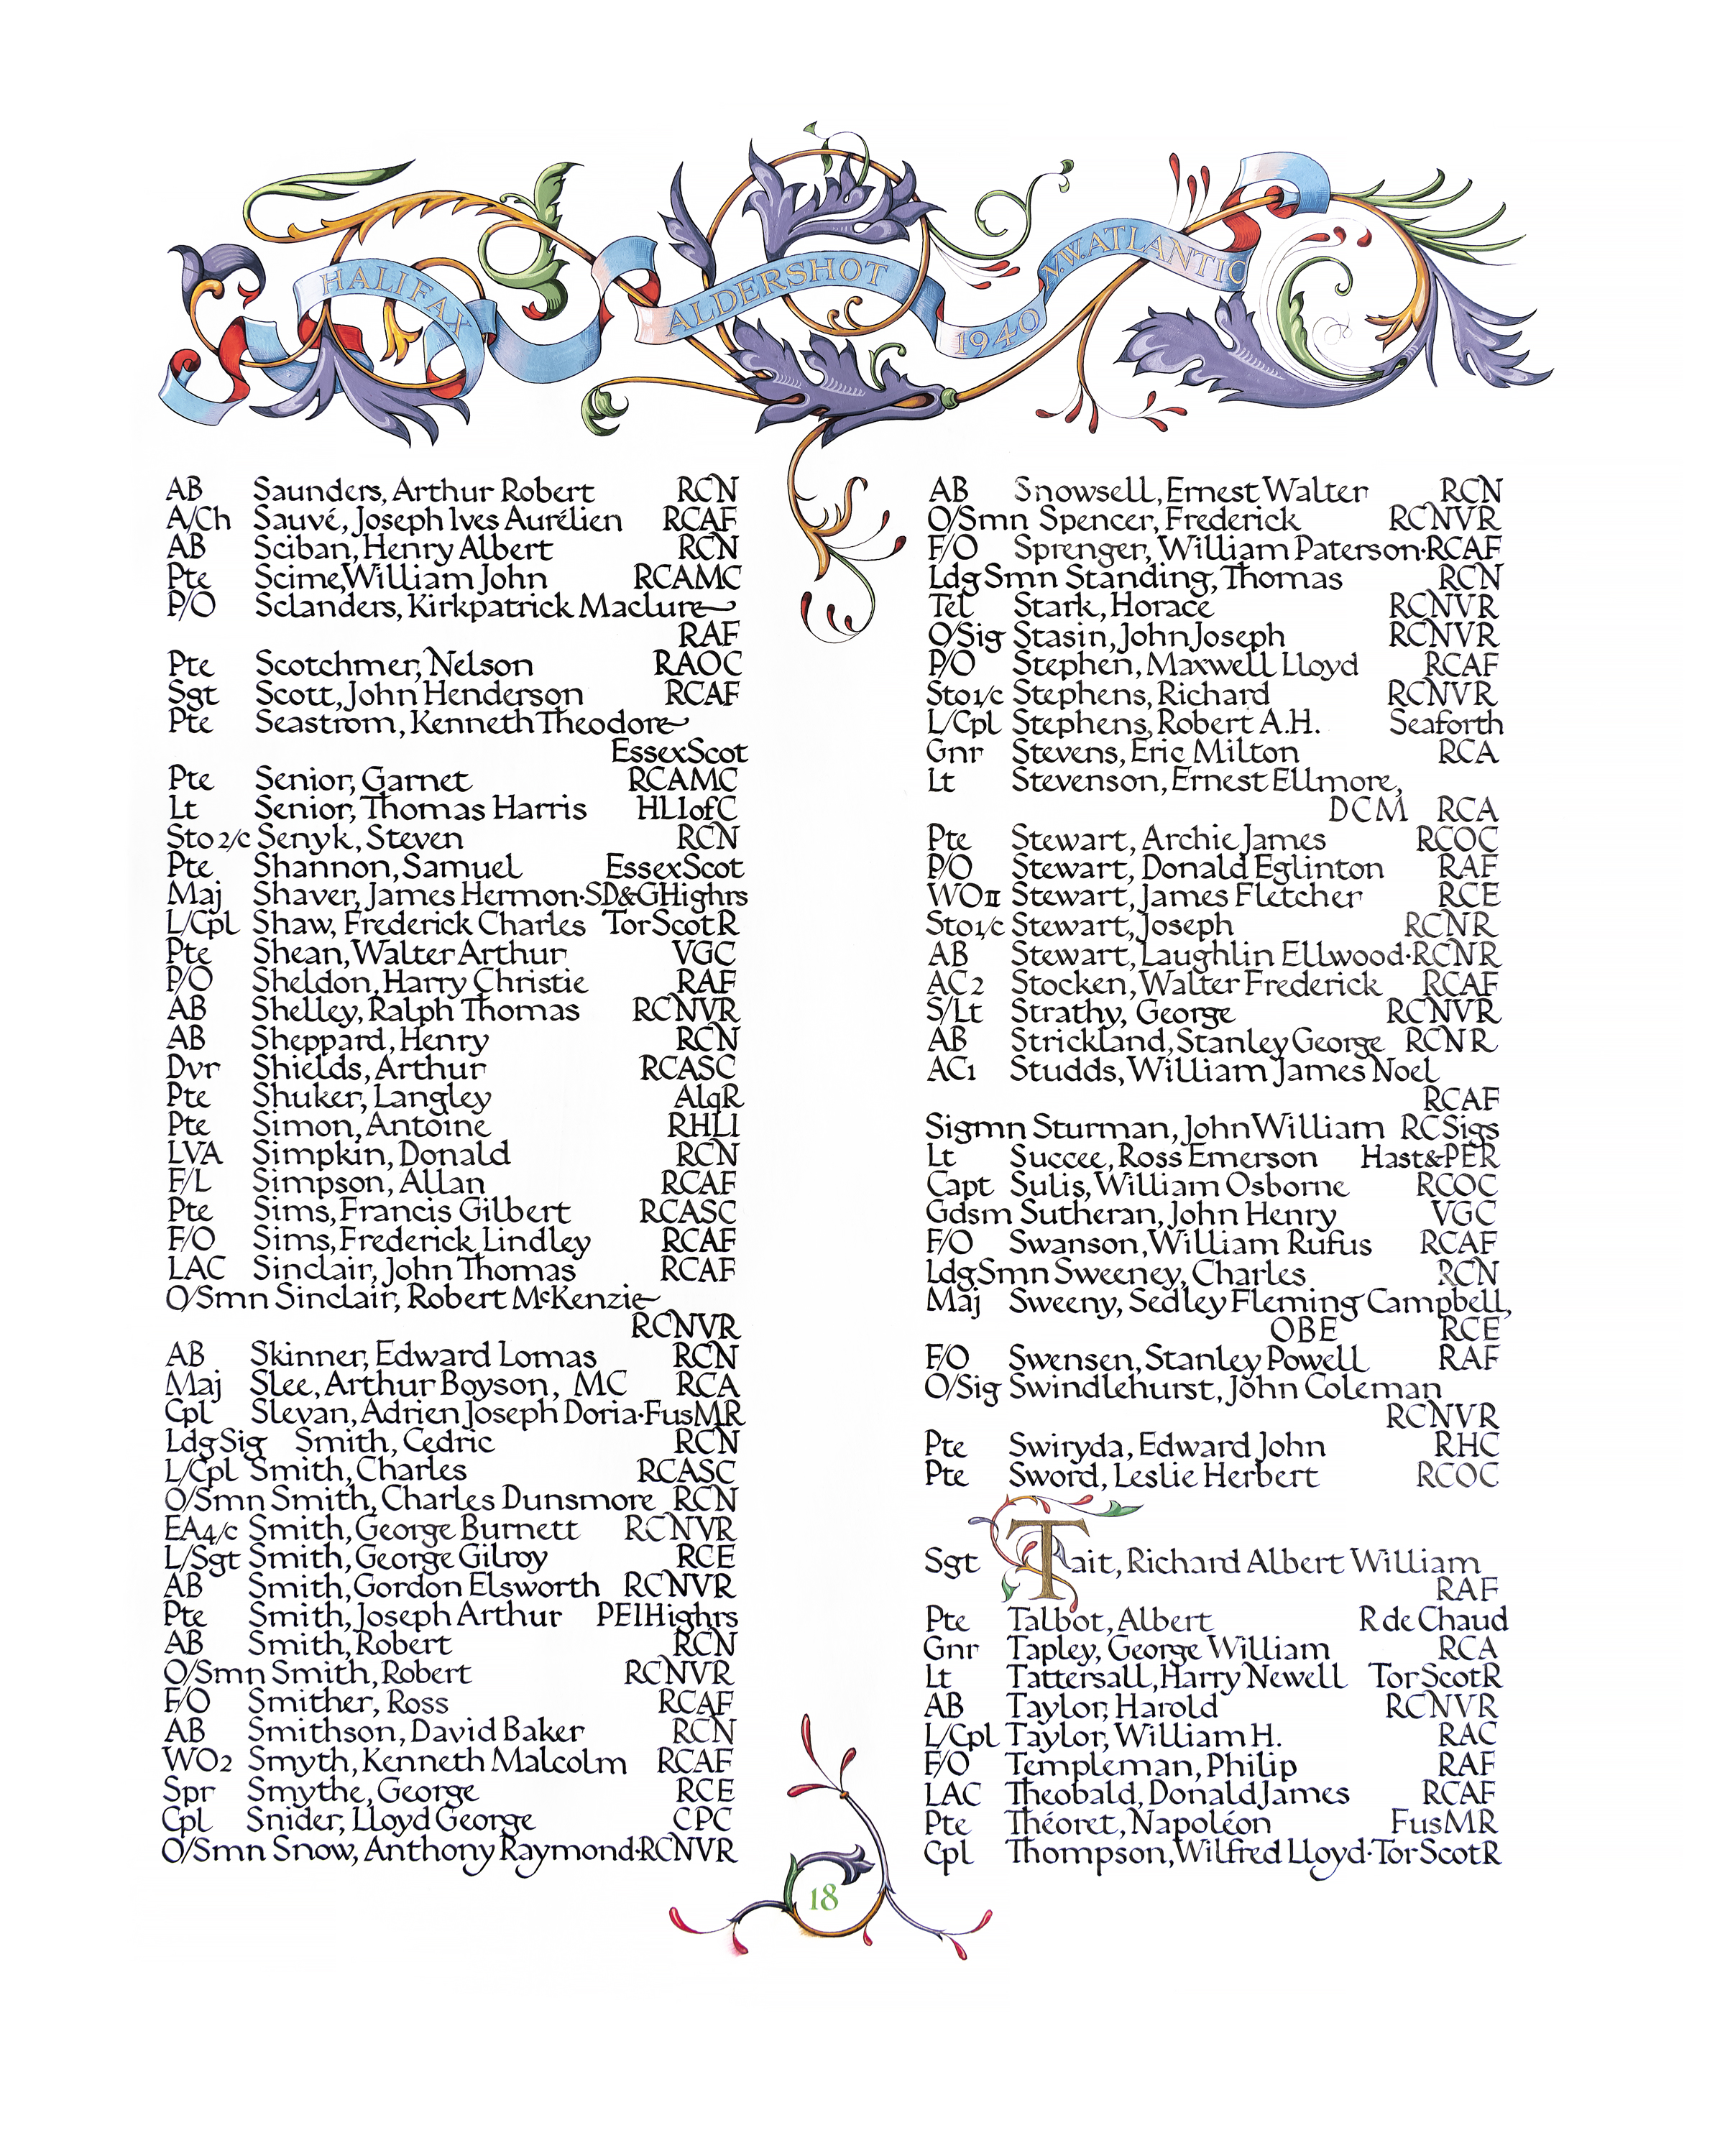 HALIFAX
ALDERSHOT
1940
N.W.ATLANTIC
AB Saunders, Arthur Robert RCN
A/Ch Sauvé, Joseph Ives Aurélien RCAF
AB Sciban, Henry Albert RCN
Pte Scime, William John RCAMC
P/O Sclanders, Kirkpatrick Maclure
RAF
Pte Scotchmer, Nelson RAOC
Sgt Scott, John Henderson RCAF
Pte Seastrom, Kenneth Theodore
Essex Scot
Pte Senior, Garnet RCAMC
Lt Senior, Thomas Harris HLI of C
Sto 2/c Senyk, Steven RCN
Pte Shannon, Samuel Essex Scot
Maj Shaver, James Hermon·SD&GHighrs
L/Cpl Shaw, Frederick Charles Tor Scot R
Pte Shean, Walter Arthur VGC
P/O Sheldon, Harry Christie RAF
AB Shelley, Ralph Thomas RCNVR
AB Sheppard, Henry RCN
Dvr Shields, Arthur RCASC
Pte Shuker, Langley AlqR
Pte Simon, Antoine RHLI
LVA Simpkin, Donald RCN
F/L Simpson, Allan RCAF
Pte Sims, Francis Gilbert RCASC
F/O Sims, Frederick Lindley RCAF
LAC Sinclair, John Thomas RCAF
O/Smn Sinclair, Robert McKenzie
RCNVR
AB Skinner, Edward Lomas RCN
Maj Slee, Arthur Boyson, MC RCA
Cpl Slevan, Adrien Joseph Doria·FusMR
Ldg Sig Smith, Cedric RCN
L/Cpl Smith, Charles RCASC
O/Smn Smith, Charles Dunsmore RCN
EA4/c Smith, George Burnett RCNVR
L/Sgt Smith, George Gilroy RCE
AB Smith, Gordon Elsworth RCNVR
Pte Smith, Joseph Arthur PEI Highrs
AB Smith, Robert RCN
O/Smn Smith, Robert RCNVR
F/O Smither, Ross RCAF
AB Smithson, David Baker RCN
WO2 Smyth, Kenneth Malcolm RCAF
Spr Smythe, George RCE
Cpl Snider, Lloyd George CPC
O/Smn Snow, Anthony Raymond·RCNVR
AB Snowsell, Ernest Walter RCN
O/Smn Spencer, Frederick RCNVR
F/O Sprenger, William Paterson·RCAF
Ldg Smn Standing, Thomas RCN
Tel Stark, Horace RCNVR
O/Sig Stasin, John Joseph RCNVR
P/O Stephen, Maxwell Lloyd RCAF
Sto1/c Stephens, Richard RCNVR
L/Cpl Stephens, Robert A.H. Seaforth
Gnr Stevens, Eric Milton RCA
Lt Stevenson, Ernest Ellmore,
DCM RCA
Pte Stewart, Archie James RCOC
P/O Stewart, Donald Eglinton RAF
WOII Stewart, James Fletcher RCE
Sto1/c Stewart, Joseph RCNR
AB Stewart, Laughlin Ellwood·RCNR
AC2 Stocken, Walter Frederick RCAF
S/Lt Strathy, George RCNVR
AB Strickland, Stanley George RCNR
AC1 Studds, William James Noel
RCAF
Sigmn Sturman, John William RC Sigs
Lt Succee, Ross Emerson Hast&PER
Capt Sulis, William Osborne RCOC
Gdsm Sutheran, John Henry VGC
F/O Swanson, William Rufus RCAF
Ldg Smn Sweeney, Charles RCN
Maj Sweeny, Sedley Fleming Campbell,
OBE RCE
F/O Swensen, Stanley Powell RAF
O/Sig Swindlehurst, John Coleman
RCNVR
Pte Swiryda, Edward John RHC
Pte Sword, Leslie Herbert RCOC
Sgt Tait, Richard Albert William
RAF
Pte Talbot, Albert R de Chaud
Gnr Tapley, George William RCA
Lt Tattersall, Harry Newell Tor Scot R
AB Taylor, Harold RCNVR
L/Cpl Taylor, William H. RAC
F/O Templeman, Philip RAF
LAC Theobald, Donald James RCAF
Pte Théoret, Napoléon FusMR
Cpl Thompson, Wilfred Lloyd·Tor Scot R
18